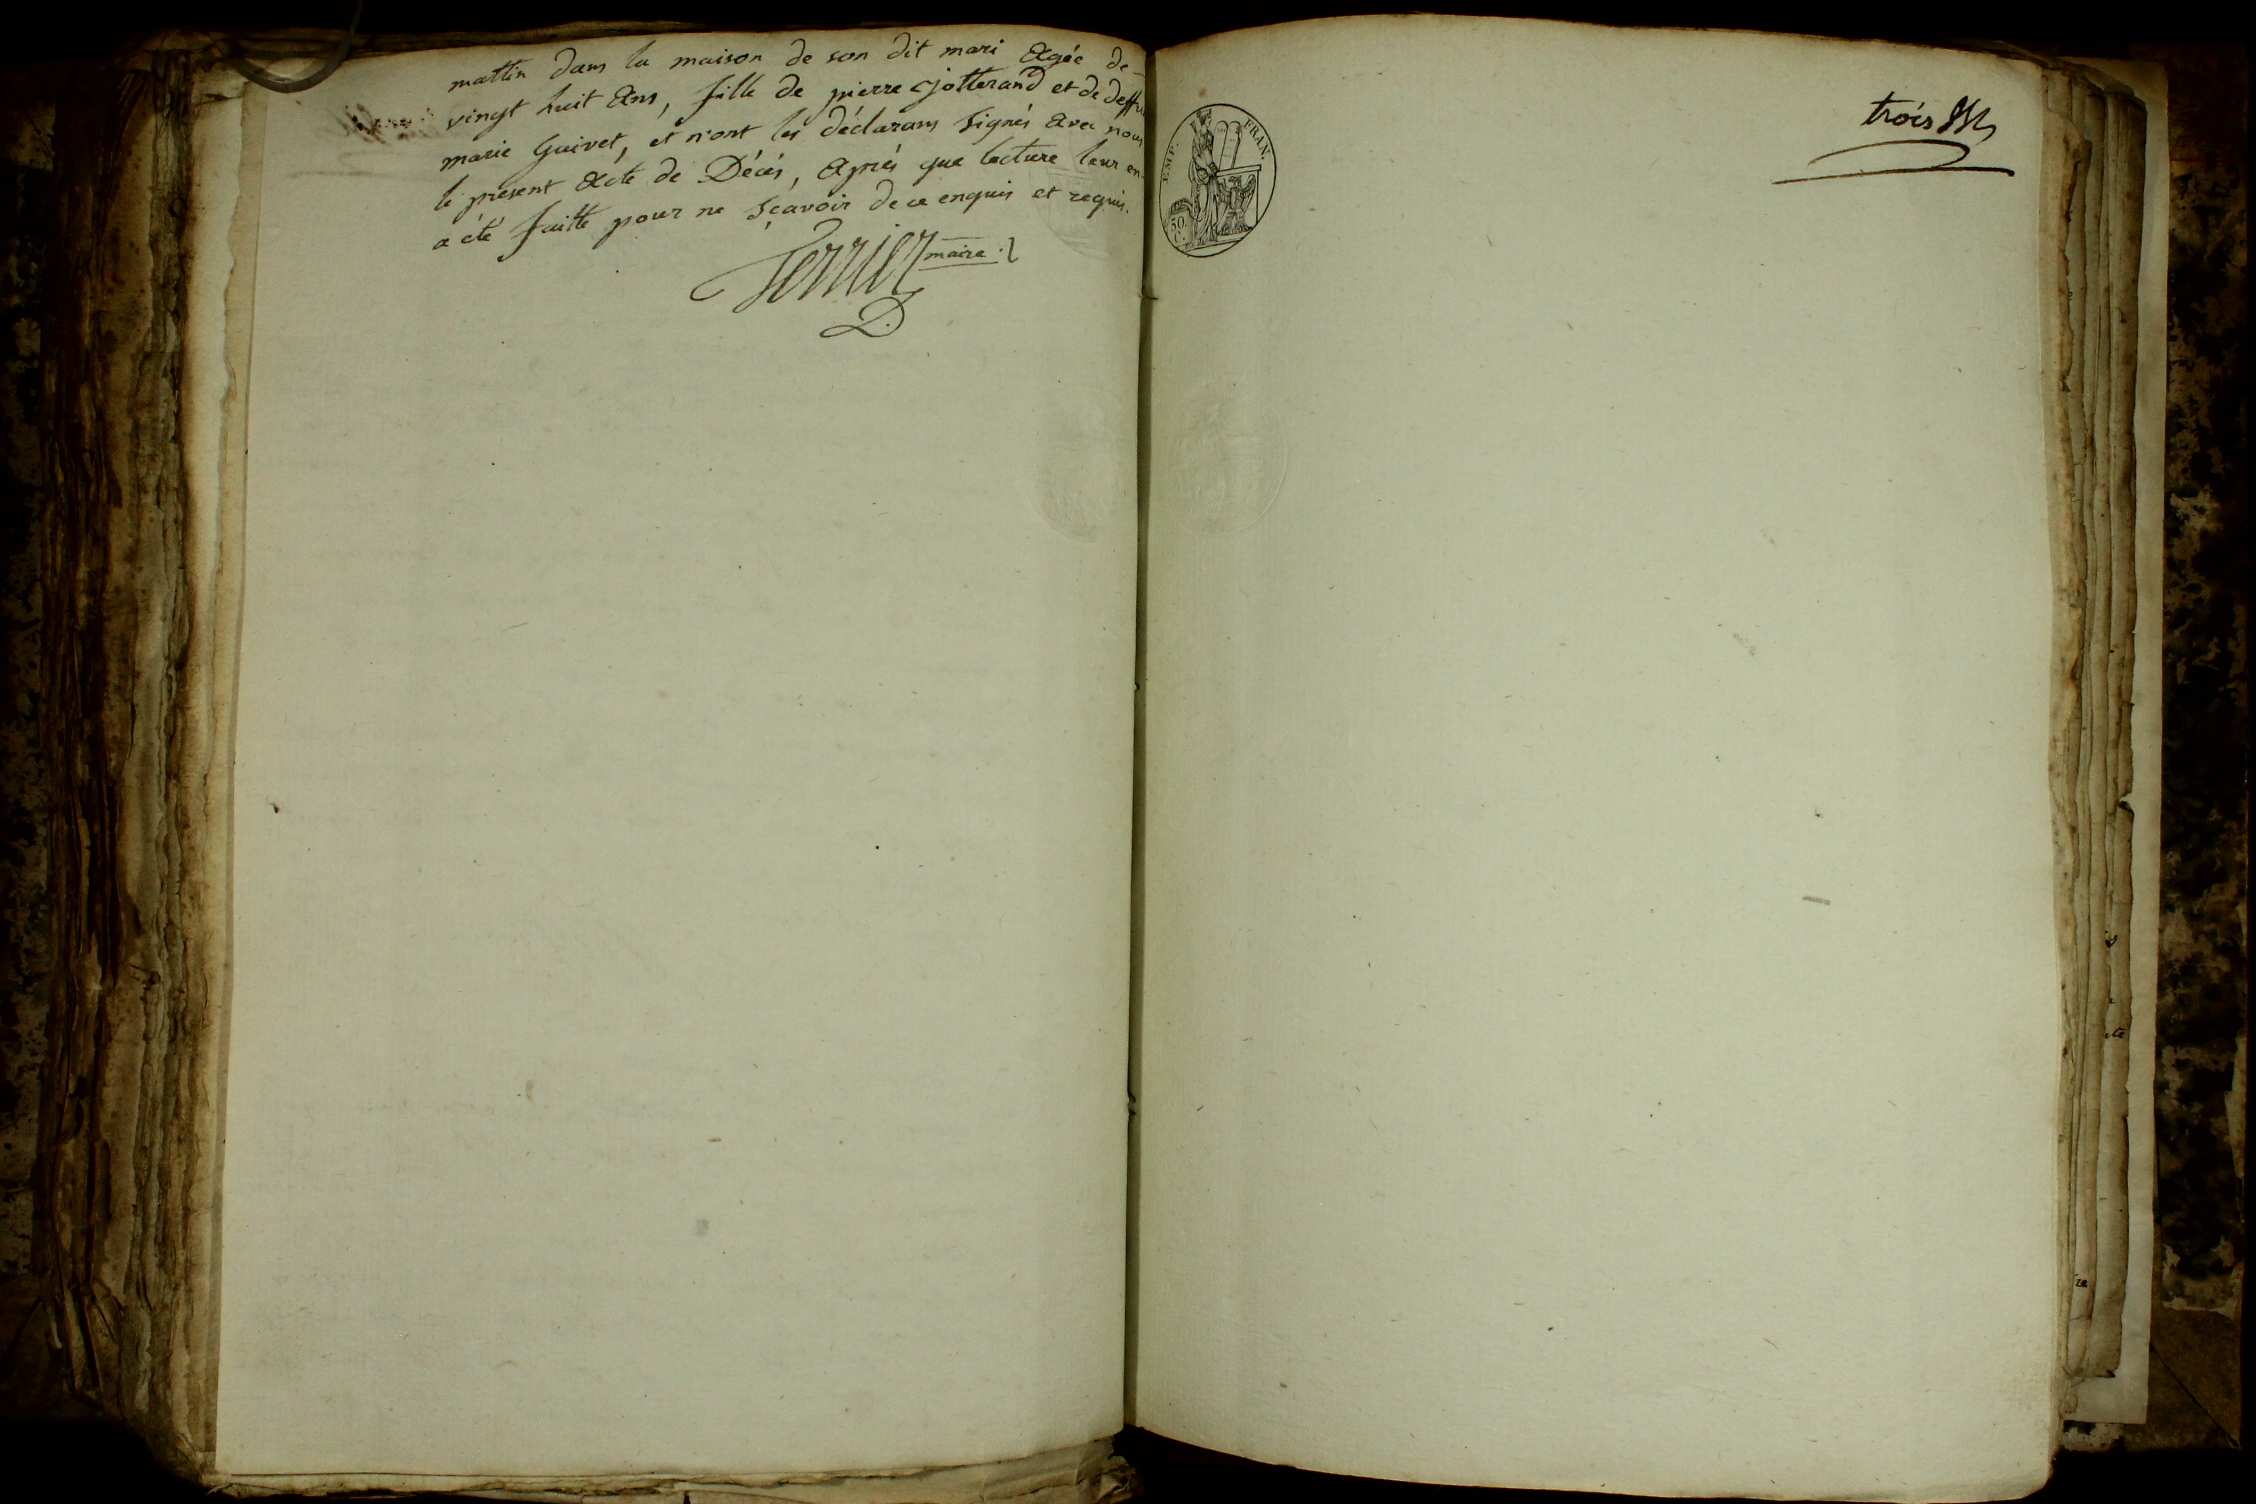 mattin dans la maison de son dit mari agée de
vingt huit ans, fille de pierre jotterand et de deffu
marie Guivet, et n'ont les déclarans signés avec nous
le present acte de Décés, aprés que lecture leur en
a été faitte pour ne sçavoir de ce enquis et requis.
Perrier maire
EMP. FRAN.
50 C.
trois